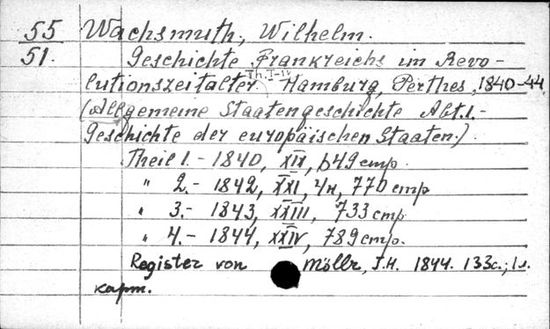 55 Wachsmuth, Wilhelm.
51. Geschichte Frankreichs im Revo-
lutionszeitalter. Th. I-IV Hamburg, Perthes, 1840-44
(Allgemeine Staatengeschichte Abt. 1.-
Geschichte der europäischen Staaten.)
Theil 1.- 1840, XIV, 649 стр.
" 2.- 1842, XXI, 4н, 770 стр
" 3.- 1843, XXIII, 733 стр
" 4.- 1844, XXIV, 789 стр.
Register von Möller, J.H. 1844. 133с.; 1л.
карт.